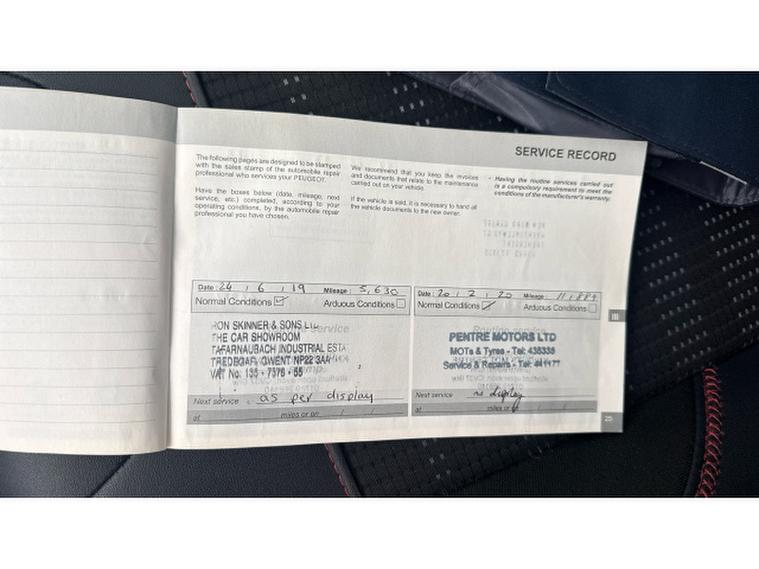 SERVICE RECORD
The following pages are designed to be stamped
with the sales stamp of the automobile repair
professional who services your PEUGEOT.
Have the boxes below (date, mileage, next
service, etc.) completed, according to your
operating conditions, by the automobile repair
professional you have chosen.
We recommend that you keep the invoices
and documents that relate to the maintenance
carried out on your vehicle.
If the vehicle is sold, it is necessary to hand all
the vehicle documents to the new owner.
- Having the routine services carried out
is a compulsory requirement to meet the
conditions of the manufacturer's warranty.
Date: 24 / 6 / 19 Mileage: 5,630
Normal Conditions Arduous Conditions
RON SKINNER & SONS
THE CAR SHOWROOM
TAFARNAUBACH INDUSTRIAL ESTA
TREDEGAR, GWENT NP22 3AA
VAT No: 135 7378 55
Next service as per display
at miles or on / /
Date: 20 / 2 / 20 Mileage: 11,889
Normal Conditions Arduous Conditions
PENTRE MOTORS LTD
MOTs & Tyres - Tel: 438336
Service & Repairs - Tel: 441177
Next service as display
at miles or / /
25